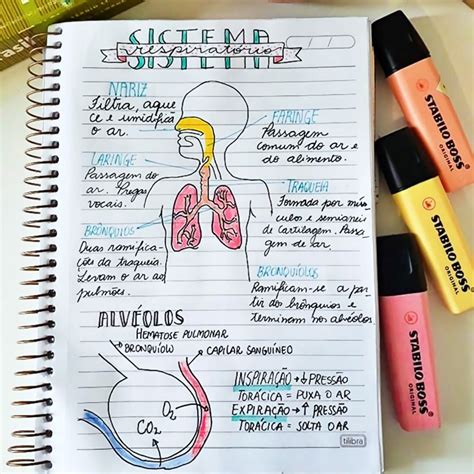 SISTEMA
respiratório
NARIZ
Filtra, aque
ce e umidifica
o ar.
FARINGE
Passagem
comum do ar e
do alimento.
LARINGE
Passagem do
ar. Pregas
vocais.
TRAQUEIA
Formada por mús
culos e semianéis
de cartilagem. Passa
gem de ar.
BRÔNQUIOS
Duas ramifica-
ções da traqueia.
Levam o ar aos
pulmões.
BRONQUÍOLOS
Ramificam-se a par
tir dos brônquios e
terminam nos alvéolos
ALVÉOLOS
HEMATOSE PULMONAR
BRONQUÍOLO
CAPILAR SANGUÍNEO
O2
CO2
INSPIRAÇÃO → ↓ PRESSÃO
TORÁCICA = PUXA O AR
EXPIRAÇÃO → ↑ PRESSÃO
TORÁCICA = SOLTA O AR
tilibra
STABILO BOSS
ORIGINAL
STABILO BOSS
ORIGINAL
STABILO BOSS
ORIGINAL